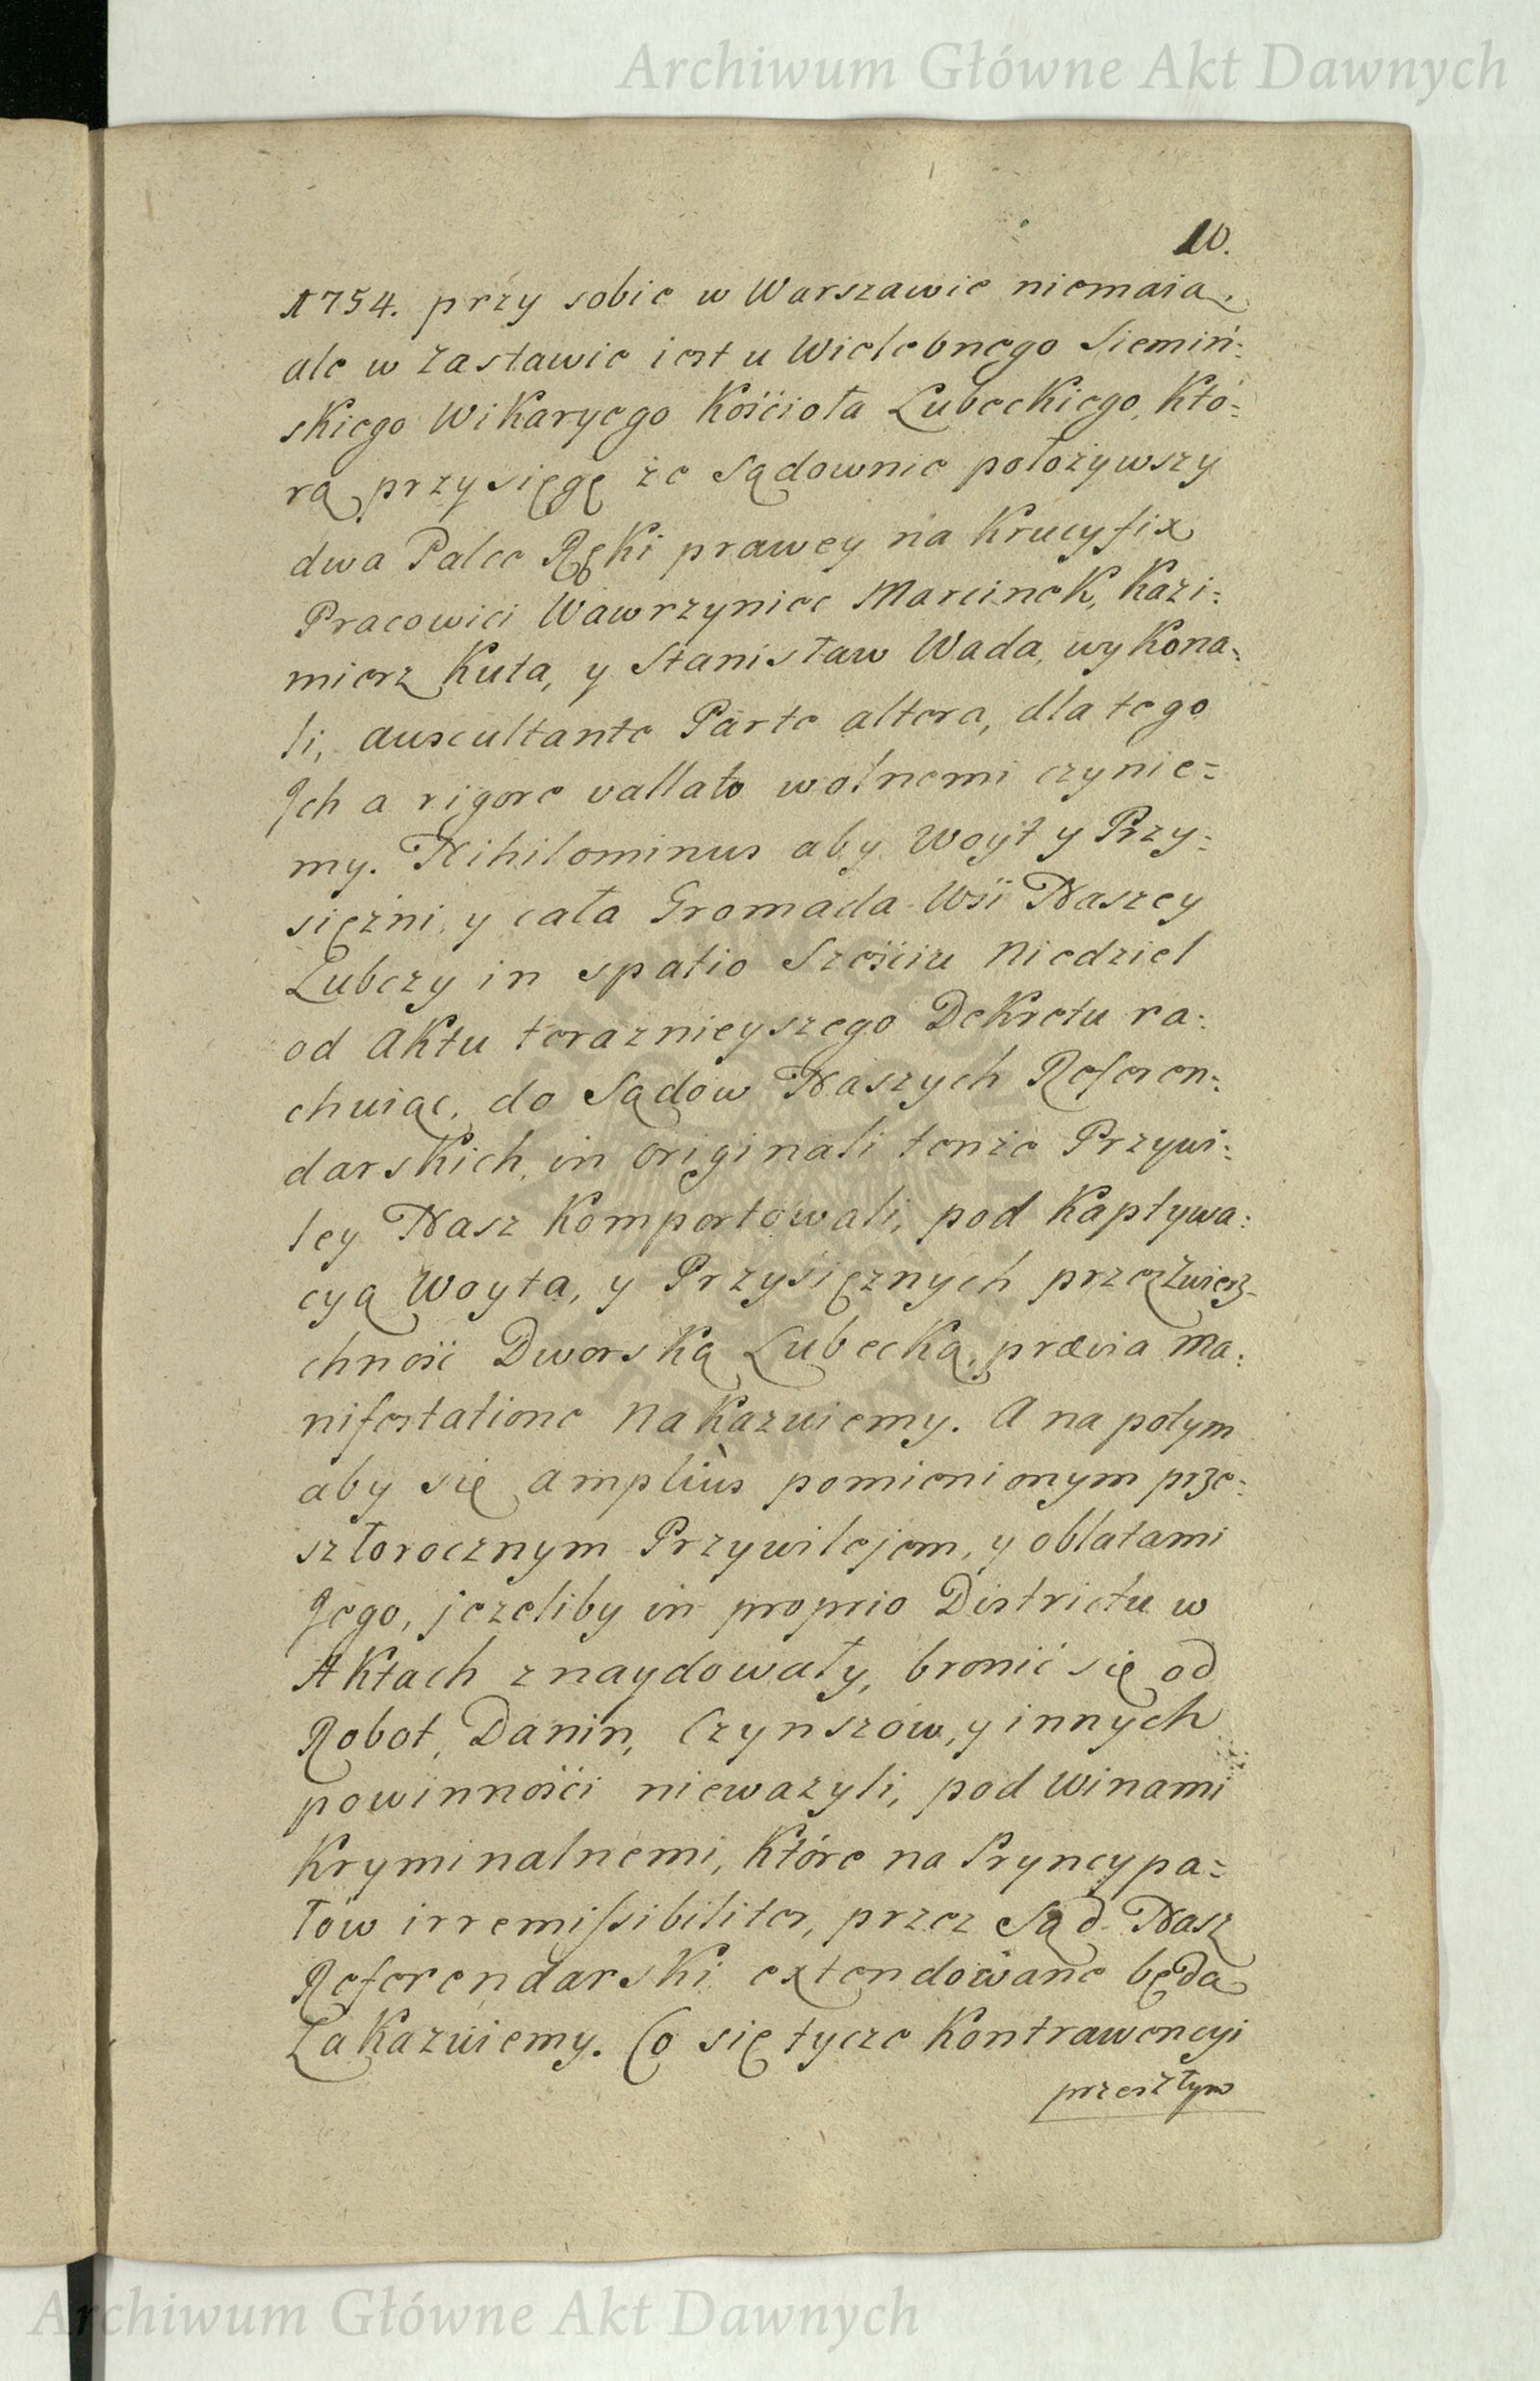 Archiwum Główne Akt Dawnych
10.
1754. przy sobie w Warszawie niemaią,
ale w zastawie iest u Wielebnego Siemiń:
skiego Wikaryego Kościoła Lubeckiego, Któ=
rą przysięgę że Sądownie położywszy
dwa Palce Ręki prawey na Krucyfix
Pracowici Wawrzyniec Marcinek, Kazi:
mierz Kuta, y Stanisław Wada, wykona:
li, auscultante Parte altera, dla tego
Ich a rigore vallato wolnemi czynie=
my. Nihilominus aby Woyt y Przy:
siężni, y cała Gromada Wsi Naszey
Lubczy in spatio Szesciu Niedziel
od Aktu teraznieyszego Dekretu ra:
chuiąc, do Sądow Naszych Referen:
darskich, in originali tenże Przywi:
ley Nasz Komportowali, pod Kaptywa:
cyą Woyta, y Przysiężnych przez Zwierz-
chność Dworską Lubecką, prævia Ma:
nifestatione Nakazuiemy. A na potym
aby się ampliùs pomienionym prze:
szłorocznym Przywilejem, y oblatami
Jego, jezeliby in proprio Districtu w
Aktach znaydowały, bronić się od
Robot, Danin, Czynszów, y innych
powinności nieważyli, pod Winami
Kryminalnemi, Które na Pryncypa=
łów irremissibiliter, przez Sąd Nasz
Referendarski extendowane będą
Zakazuiemy. Co się tycze Kontrawencyi
przeszłym
Archiwum Główne Akt Dawnych